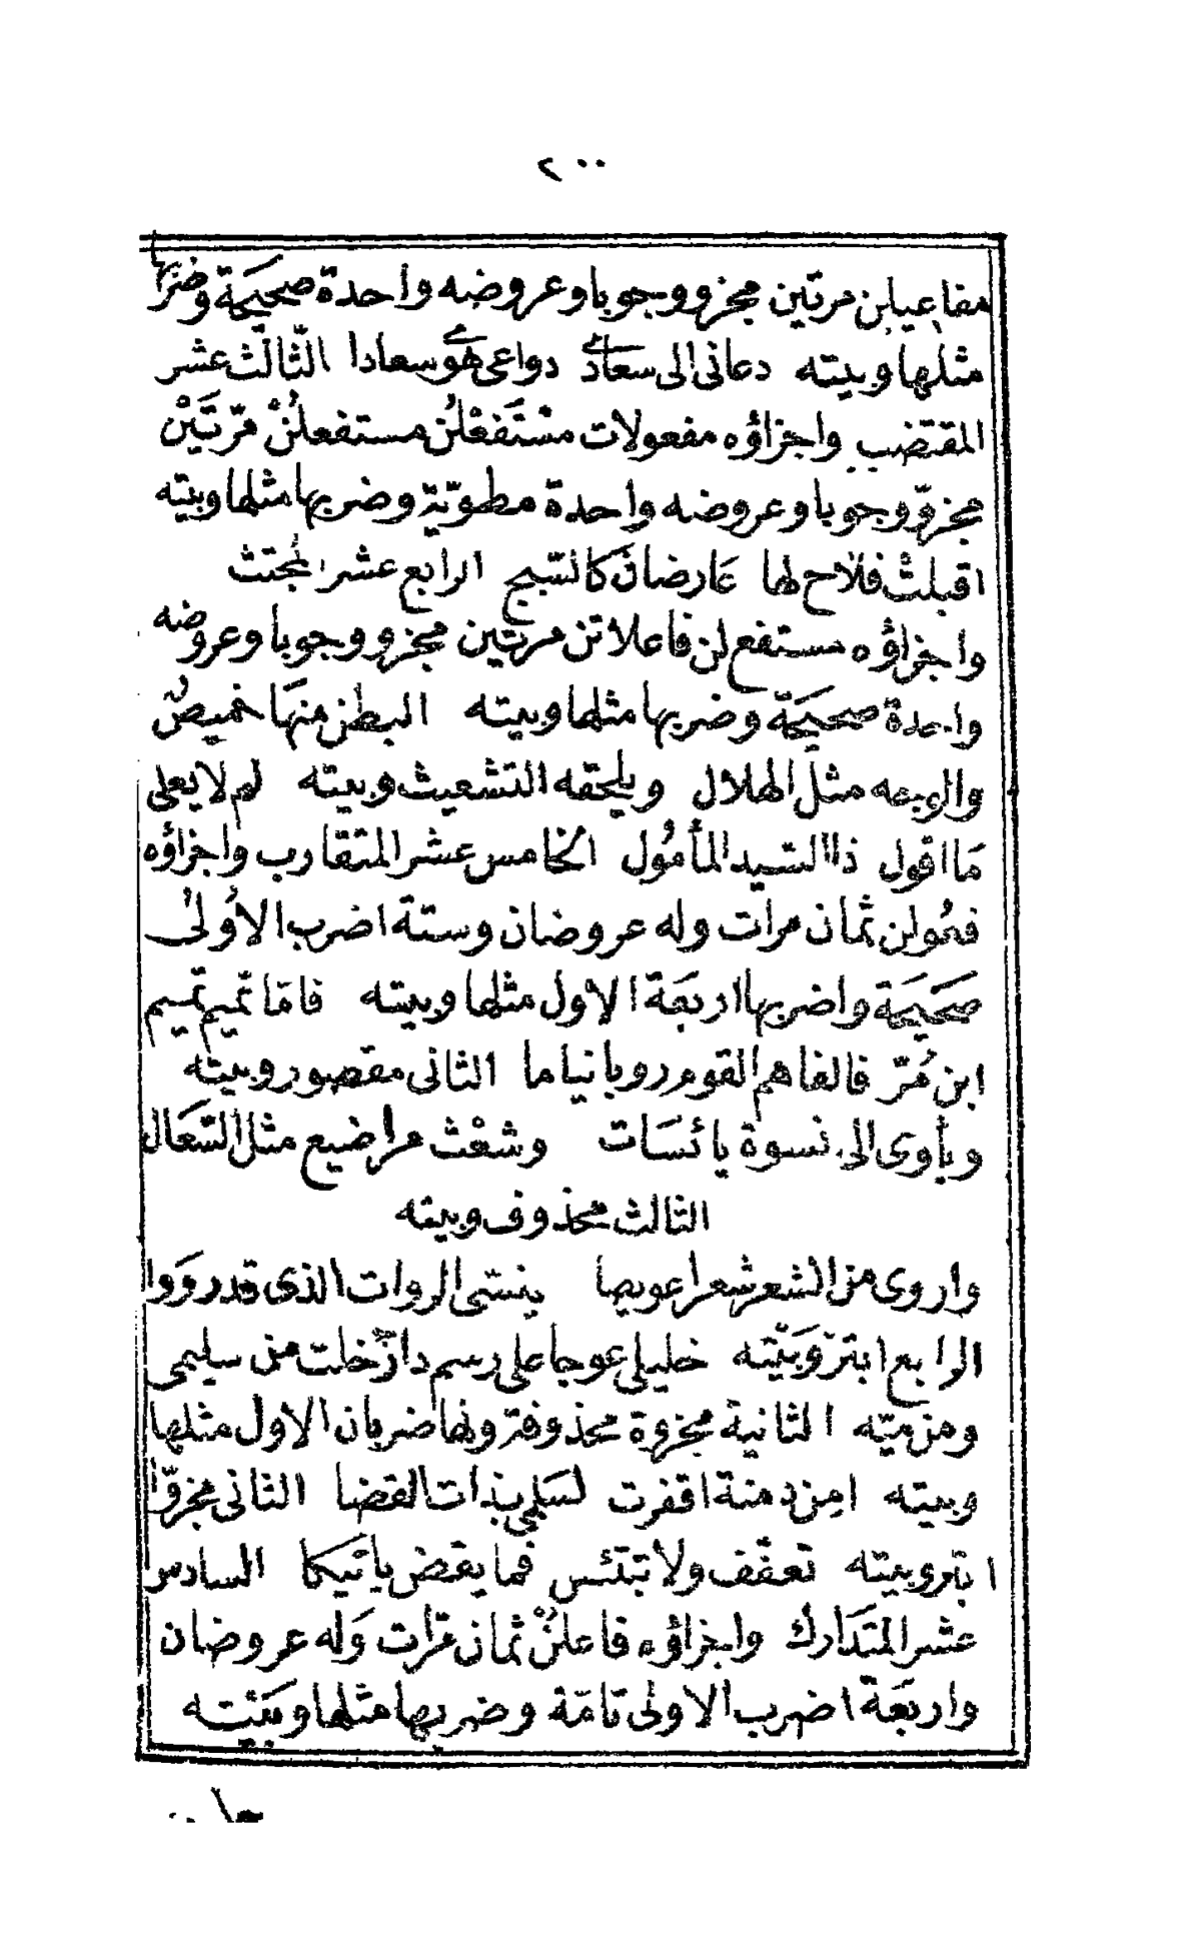 ٢٠٠
مفاعيلن مرتين مجزو وجوبا وعروضه واحدة صحيحة وضربها
مثلها وبيته دعانى الى سعاد دواعى هوى سعادا الثّالث عشر
المقتضب واجزاؤه مفعولات مسْتَفعْلُن مستفعلُنْ مرّتَيْن
مجزوّ وجوبا وعروضه واحدة مطويّة وضربها مثلها وبيته
اقبلتْ فلاح لها عارضان كالسّبج الرابع عشر المجتث
واجزاؤه مستفع لن فاعلاتن مرتين مجزو وجوبا وعروضه
واحدة صحيحَة وضربها مثلها وبيته البطن منهَا خميصٌ
والوجه مثل الهلال ويلحقه التشعيث وبيته لم لا يعى
مَا اقول ذا السّيد المأمُول الخامس عشر المتقارب واجزاؤه
فعُولن ثمان مرات وله عروضان وستة اضرب الاُولىٰ
صَحَيحَة واضربها اربعَة الاول مثلها وبيته فامّا تَميم تَميم
ابن مُرّ فالفاهم القوم روبا نياما الثانى مقصور وبيته
ويأوى الى نسوة يائسَات وشعْث مراضيع مثل السَّعَال
الثالث محذوف وبيته
واروى من الشعر شعرا عويصا ينسّى الروات الذى قد رَوَوا
الرابع ابتر وَبَيْته خليلى عوجا على رسم دار خلت من سليمى
ومن ميّه الثانية مجزوة محذوفة ولها ضربان الاول مثلها
وبيته امن دمنة اقفرت لسَلمى بذات الغضا الثانى مجزوّ
ابتر وبيته تعفف ولا تبتئس فما يقض يأتيكا السادس
عشر المتدَارك واجزاؤه فاعلنْ ثمان مرّات وَله عروضان
واربَعَة اضرب الاولى تامّة وضربها مثلها وبَيْته